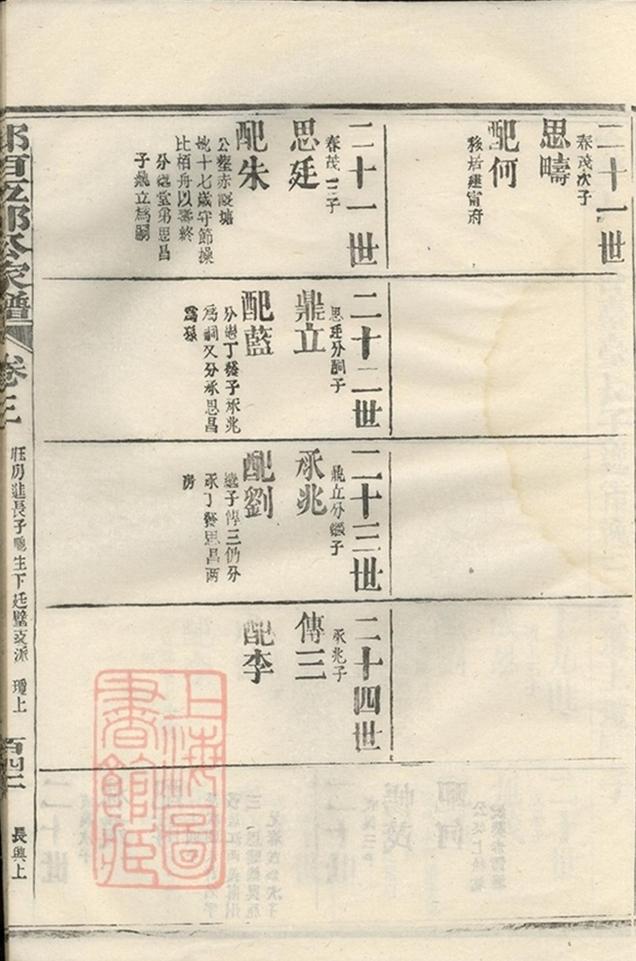 二十一世
思疇
春茂次子
配何
移居建甯府
二十一世
思廷
春茂三子
配朱
公塟赤
氏十七歲守節操
比栢舟以壽終
分繼堂弟思昌
子鼎立爲嗣
二十二世
鼎立
思廷分嗣子
配藍
分繼丁發子承兆
爲嗣又分承思昌
爲孫
二十三世
承兆
鼎立分繼子
配劉
繼子傳三仍分
承丁發思昌两
房
二十四世
傳三
承兆子
配李
百五郎公家譜
卷三
旺房進長子聰生下廷璧支派
瓊上
百四二
長興上
上海圖書館藏